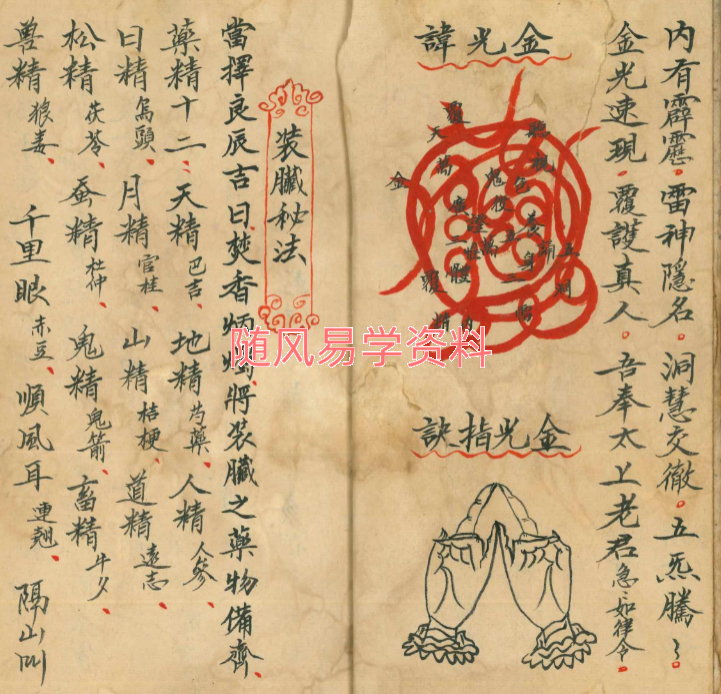 内有霹靂。雷神隱名。洞慧交徹。五炁騰〻。
金光速現。覆護真人。吾奉太上老君急〻如律令。
金光諱
金光指訣
裝臟秘法
當擇良辰吉日焚香炳燭將裝臟之藥物備齊、
藥精十二：天精巴吉、地精芍藥、人精人參、
日精烏頭、月精官桂、山精桔梗、道精遠志、
松精茯苓、蚕精杜仲、鬼精鬼箭、畜精牛夕、
兽精狼毒、千里眼赤豆、順風耳連翹、隔山叫
随风易学资料